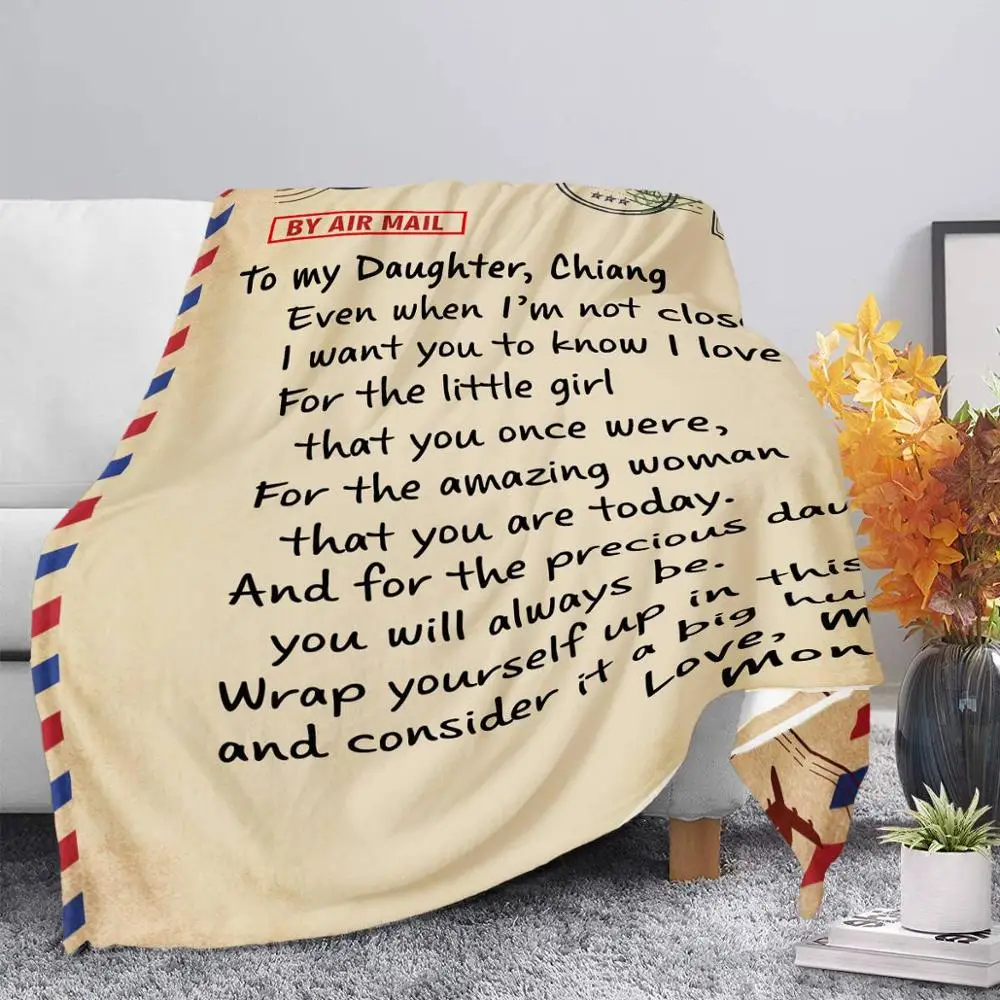 BY AIR MAIL
To my Daughter, Chiang
Even when I'm not
I want you to know I love
For the little girl
that you once were,
For the amazing woman
that you are today.
And for the precious
you will always be.
Wrap yourself up in this
and consider it a big
Love,